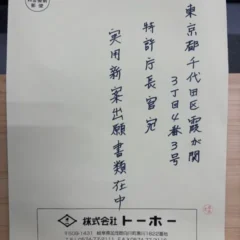 東京都千代田区霞が関
3丁目4番3号
特許庁長官宛
実用新案出願書類在中
株式会社トーホー